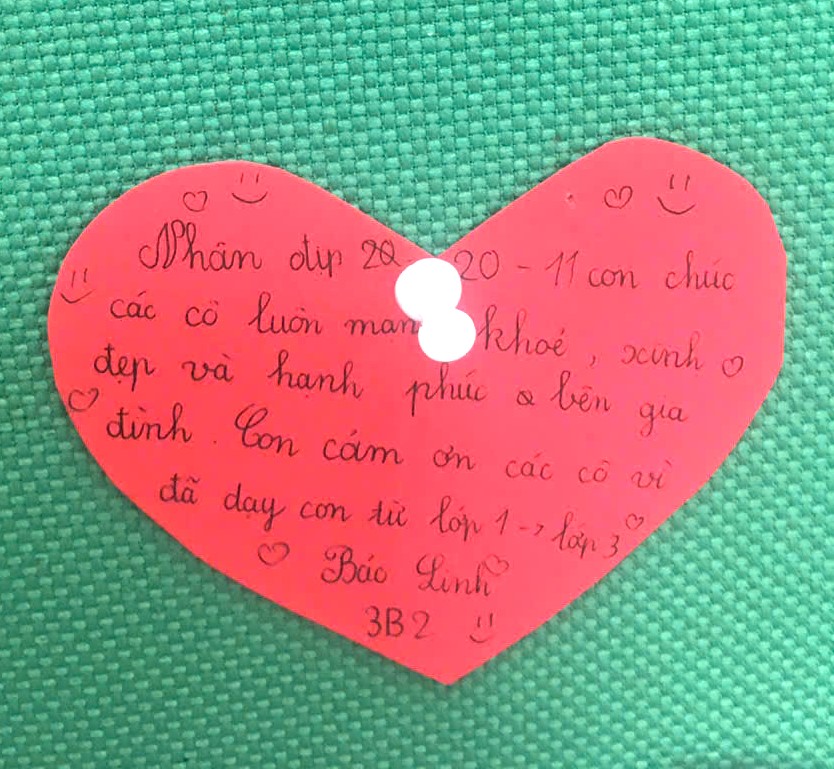 Nhân dịp 20 20 - 11 con chúc
các cô luôn mạn khoẻ, xinh
đẹp và hạnh phúc bên gia
đình. Con cảm ơn các cô vì
đã dạy con từ lớp 1 -> lớp 3
Bảo Linh
3B2